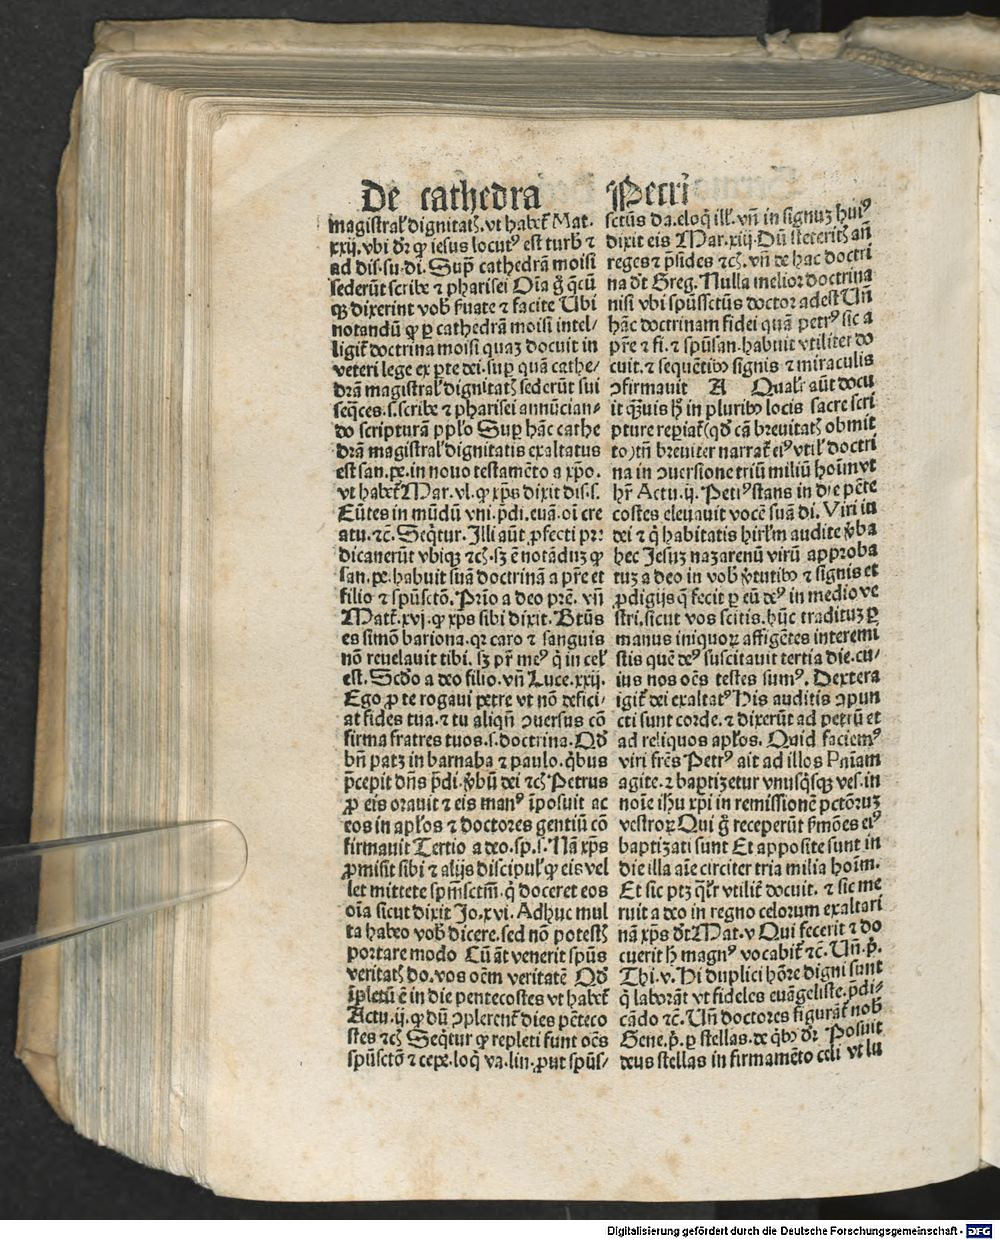 De cathedra Petri
magistral' dignitatꝭ. vt habet̄ Mat.
xxij. vbi dr̄ ꝙ iesus locutꝰ est turb̄ ⁊
ad dis. su. di. Sup̄ cathedrā moisi
sederūt scribe ⁊ pharisei Oīa g̊ q̄cū
qꝫ dixerint vob̄ ẜuate ⁊ facite Ubi
notandū ꝙ ꝑ cathedrā moisi intel/
ligit̄ doctrina moisi quaꝫ docuit in
veteri lege ex ꝑte dei. suꝑ quā cathe/
drā magistral' dignitatꝭ sederūt sui
seq̄ces. s. scribe ⁊ pharisei annūcian/
do scripturā ppl'o Suꝑ hāc cathe
drā magistral' dignitatis exaltatus
est san. pe. in nouo testamēto a xp̄o.
vt habet̄ Mar. vl. ꝙ xp̄s dixit dis. s.
Eūtes in mūdū vni. p̄di. euā. oī cre
atu. ⁊c̄. Seq̄tur. Illi aūt ꝓfecti pre
dicauerūt vbiqꝫ ⁊cꝭ. sꝫ ē notāduꝫ ꝙ
san. pe. habuit suā doctrinā a pr̄e et
filio ⁊ spūsctō. Prīo a deo pr̄e. vn̄
Matt̄. xvj. ꝙ xp̄s sibi dixit. Btūs
es simō bariona. qr caro ⁊ sanguis
nō reuelauit tibi. sꝫ pr̄ meꝰ q̇ in cel'
est. Scd̄o a deo filio. vn̄ Luce. xxij.
Ego ꝓ te rogaui petre vt nō defici/
at fides tua. ⁊ tu aliqn̄ ↄuersus cō
firma fratres tuos. s. doctrina. Qd̄
bn̄ patꝫ in barnaba ⁊ paulo. q̇bus
p̄cepit dn̄s p̄di. v̄bū dei ⁊cꝭ Petrus
ꝓ eis orauit ⁊ eis manꝰ īposuit ac
eos in apl'os ⁊ doctores gentiū cō
firmauit Tertio a deo. sp. s. Nā xp̄s
ꝓmisit sibi ⁊ alijs discipul' ꝙ eis vel
let mittete spm̄sctm̄. q̇ doceret eos
oīa sicut dixit Jo. xvi. Adhuc mul
ta habeo vob̄ dicere. sed nō potestꝭ
portare modo Cū āt venerit spūs
veritatꝭ do. vos oēm veritatē Qd̄
īpletū ē in die pentecostes vt habet̄
Actu. ij. ꝙ dū ↄplerent̄ dies pēteco
stes ⁊cꝭ Seq̄tur ꝙ repleti sunt oēs
spūsctō ⁊ cepe. loq̇ va. lin. ꝓut spūs/
sctūs da. eloq̇ ill'. vn̄ in signuꝫ huiꝰ
dixit eis Mar. xiij. Dū steteritꝭ an̄
reges ⁊ p̄sides ⁊cꝭ. vn̄ de hac doctri
na dt̄ Greg. Nulla melior doctrina
nisi vbi spūssctūs doctor adest Un̄
hāc doctrinam fidei quā petrꝰ sic a
pr̄e ⁊ fi. ⁊ spūsan. habuit vtiliter do
cuit. ⁊ sequētibꝰ signis ⁊ miraculis
ↄfirmauit A Qual'r aūt docu
it q̄ꝫuis h̄ in pluribꝰ locis sacre scri
pture reꝑiat̄ (qd̄ cā breuitatꝭ obmit
to) tn̄ breuiter narrat̄ eiꝰ vtil' doctri
na in ↄuersione triū miliū hoīm vt
hr̄ Actu. ij. Petrꝰ stans in die pēte
costes eleuauit vocē suā di. Viri iu
dei ⁊ q̇ habitatis hirl'm audite v̄ba
hec Jesuꝫ nazarenū virū approba
tuꝫ a deo in vob̄ v̄tutibꝰ ⁊ signis et
ꝓdigijs q̄ fecit ꝑ eū deꝰ in medio ve
stri. sicut vos scitis. hūc tradituꝫ ꝑ
manus iniquoꝝ affigētes interemi
stis quē deꝰ suscitauit tertia die. cu/
ius nos oēs testes sumꝰ. Dextera
igit̄ dei exaltatꝰ His auditis ↄpun
cti sunt corde. ⁊ dixerūt ad petrū et
ad reliquos apl'os. Quid faciemꝰ
viri fr̄es Petrꝰ ait ad illos Pnīam
agite. ⁊ baptiꝫetur vnusq̇sqꝫ ves. in
noīe ihu xpi in remissionē pctōruꝫ
vestroꝝ Qui g̊ receperūt ẜmōes eiꝰ
baptiꝫati sunt Et apposite sunt in
die illa aīe circiter tria milia hoīm.
Et sic ptꝫ ql̄r vtilit̄ docuit. ⁊ sic me
ruit a deo in regno celorum exaltari
nā xp̄s dt̄ Mat. v Qui fecerit ⁊ do
cuerit h̄ magnꝰ vocabit̄ ⁊c̄. Un̄. p̄.
Thi. v. Hi duplici hōre digni sunt
q̇ laborāt vt fideles euāgeliste. p̄di/
cādo ⁊c̄. Un̄ doctores figurāt̄ nob̄
Gene. p̄. ꝑ stellas. de q̇bꝰ dr̄ Posuit
deus stellas in firmamēto celi vt lu
Digitalisierung gefördert durch die Deutsche Forschungsgemeinschaft - DFG